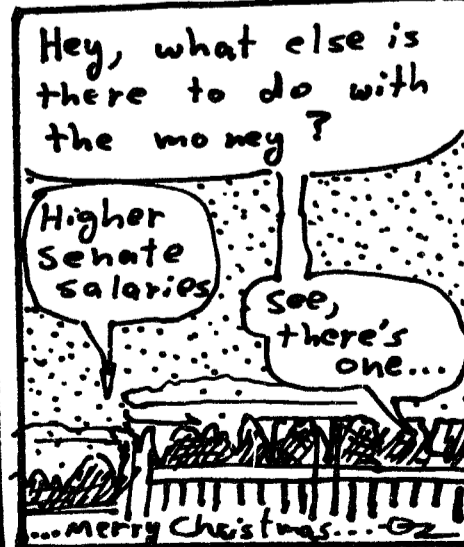 Hey, what else is
there to do with
the money?
Higher
Senate
salaries
see,
there's
one...
...Merry Christmas...